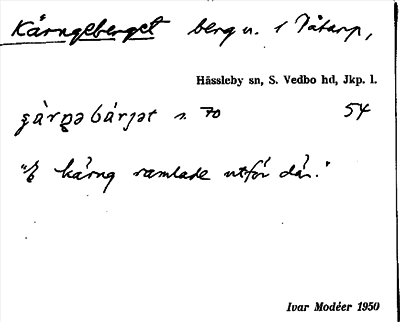 Kärngeberget berg n. i Tåtarp,
Hässleby sn, S. Vedbo hd, Jkp. l.
s. 70 54
kärng ramlade utför där."
Ivar Modéer 1950